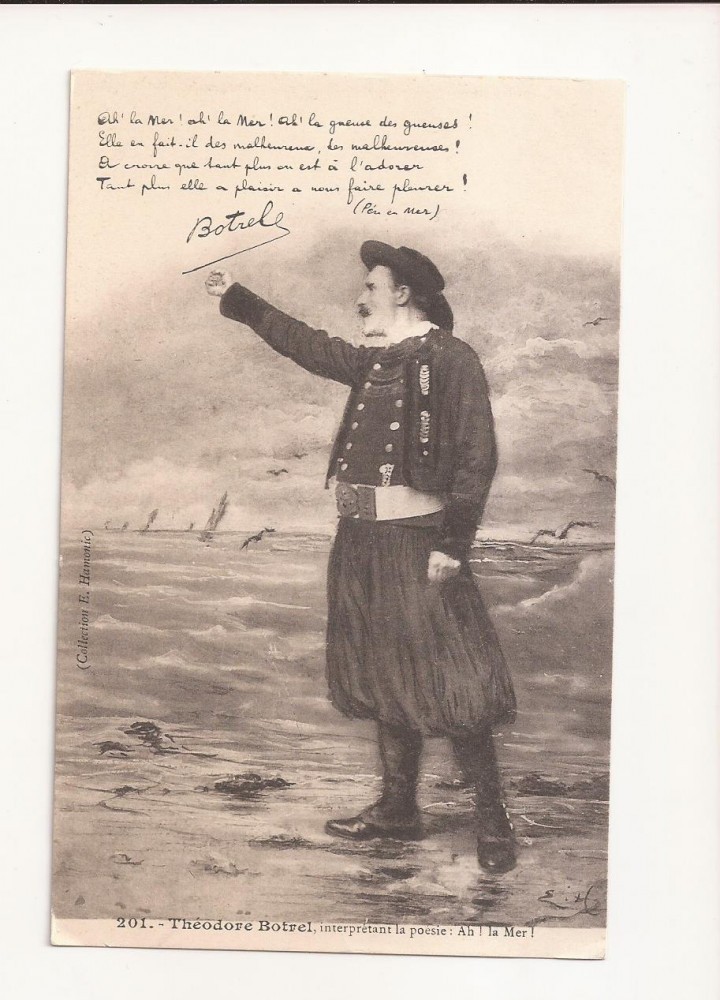 Ah! la Mer! ah! la Mer! Ah! la gueuse des gueuses!
Elle en fait-il des malheureux, des malheureuses!
A croire que tant plus on est à l'adorer
Tant plus elle a plaisir a nous faire pleurer!
(Péri en Mer)
Botrel
(Collection E. Hamonic)
E. H
201. - Théodore Botrel, interprétant la poésie : Ah ! la Mer !